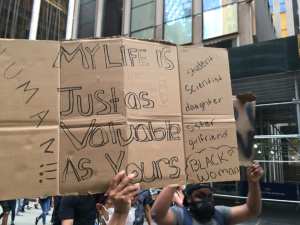 HUMAN!!!
MY LIFE IS
JUST as
Valuable
AS YOURS
student
scientist
daughter
sister
girlfriend
BLACK
WOMAN